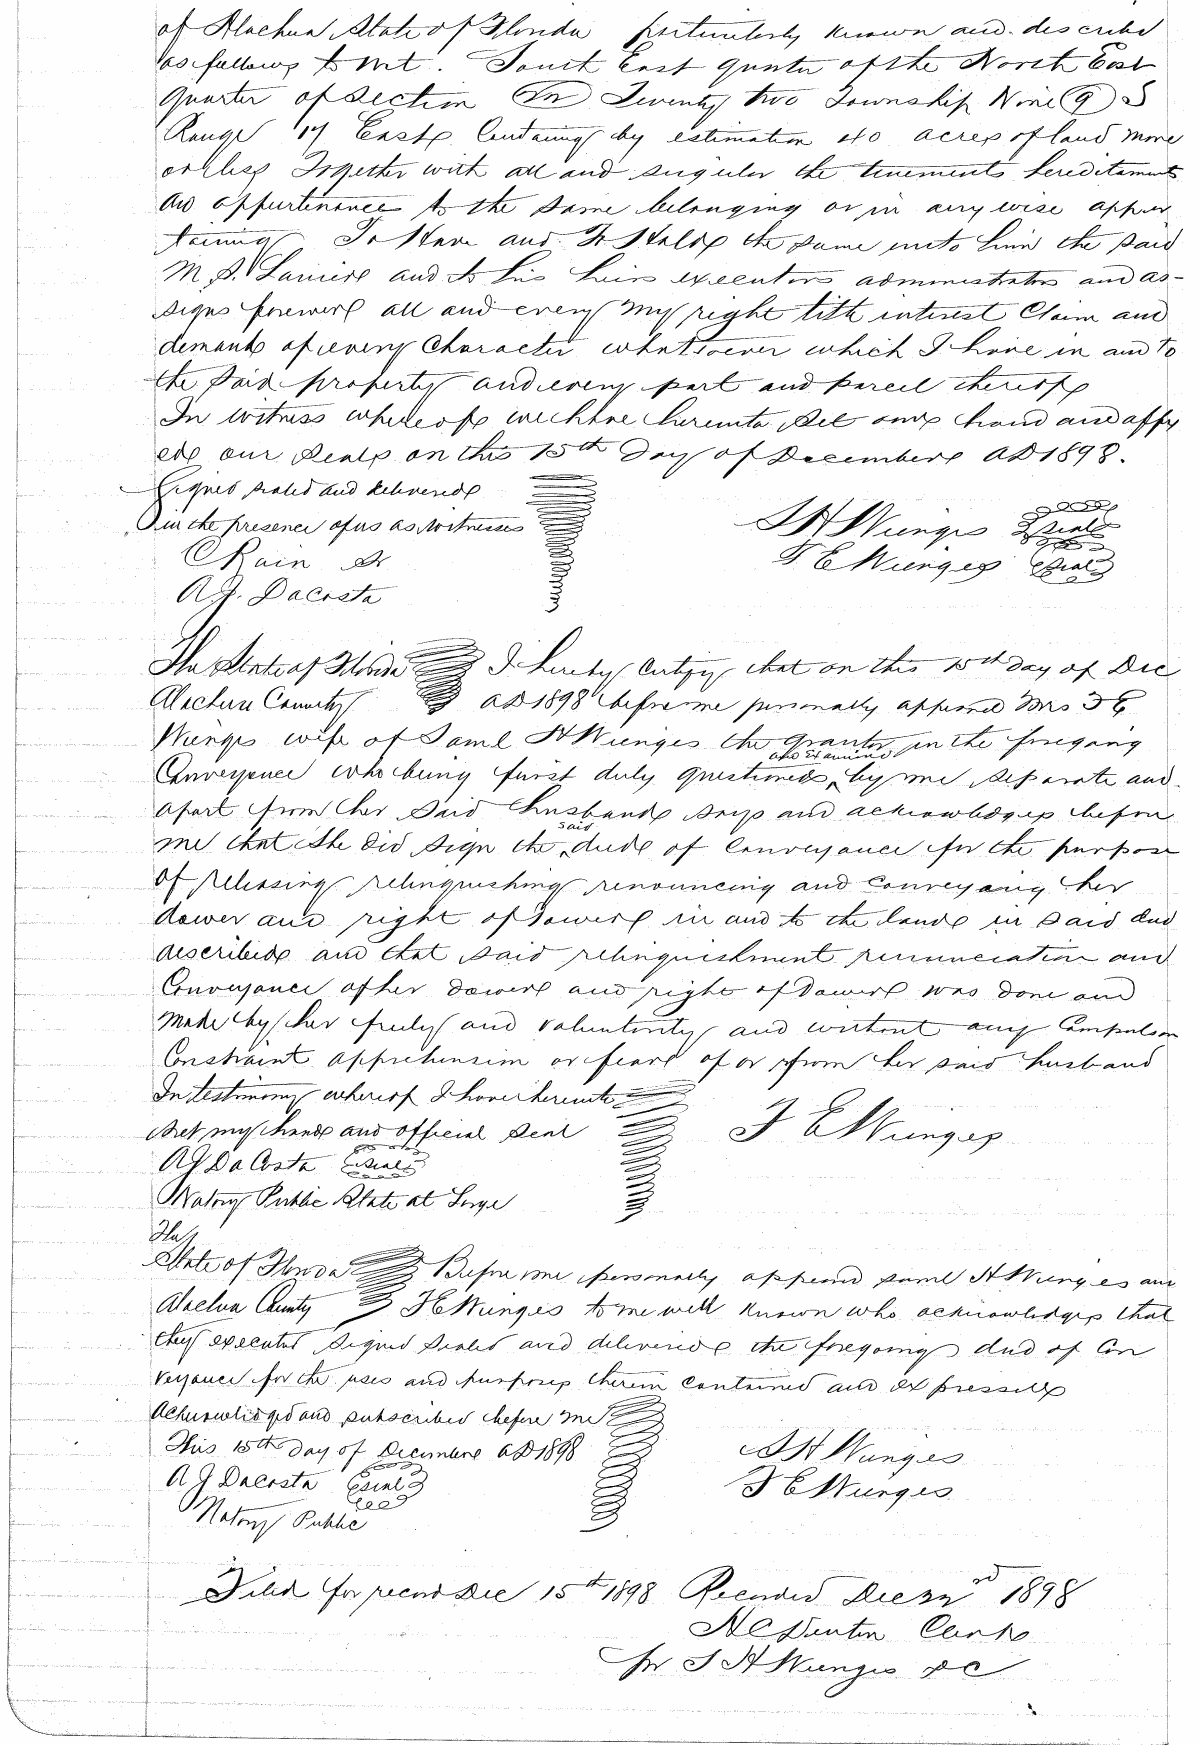 of Alachua State of Florida particularly known and describd
as follows to wit. South East quarter of the North East
Quarter of Section (22) Twenty two Township Nine (9) S
Range 17 East Containing by estimation 40 acres of land more
or less Together with all and singular the tenements hereditaments
and appurtenances to the same belonging or in any wise apper
taining To Have and To Hold the same unto him the said
M. S. Laniere and to his heirs executors administrators and as-
signs forever all and every my right title interest Claim and
demand of every Character whatsoever which I have in and to
the said property and every part and parcel thereof
In witness whereof we have hereunto set our hand and affix
ed our seals on this 15th Day of December AD 1898.
Signed sealed and delivered
in the presence of us as witnesses
C Rain Sr
A. J. Dacosta
S H Wienges Seal
F E Wienges Seal
The State of Florida I hereby Certify that on this 15th day of Dec
Alachua County AD 1898 before me personally appeared Mrs F E
Wienges wife of Saml H Wienges the grantor in the foregoing
and examined
Conveyance who being furst duly questioned by me separate and
apart from her said husband says and acknowledges before
said
me that she did sign the deed of Conveyance for the purpose
of releasing relinquishing renouncing and conveyang her
dower and right of dower in and to the lands in said deed
described and that said relinquishment renunciation and
Conveyance of her dower and right of dower was done and
made by her freely and voluntarily and without any Compulsion
Constraint apprehension or fear of or from her said husband
In testimony whereof I have hereunto
set my hand and official seal
A J DaCosta Seal
Notary Public State at Large
F E Wienges
The
State of Florida Before me personally appeared Saml H Wienges and
Alachua County F E Wienges to me well known who acknowledges that
they executed signed sealed and delivered the foregoing deed of Con
veyance for the uses and purposes therein contained and expressed
Acknowledged and subscribed before me
This 15th day of December AD 1898
A J Dacosta Seal
Notary Public
S H Wienges
F E Wienges
Filed for record Dec 15th 1898 Recorded Dec 22nd 1898
H C Denton Clerk
Pr S H Wienges D C